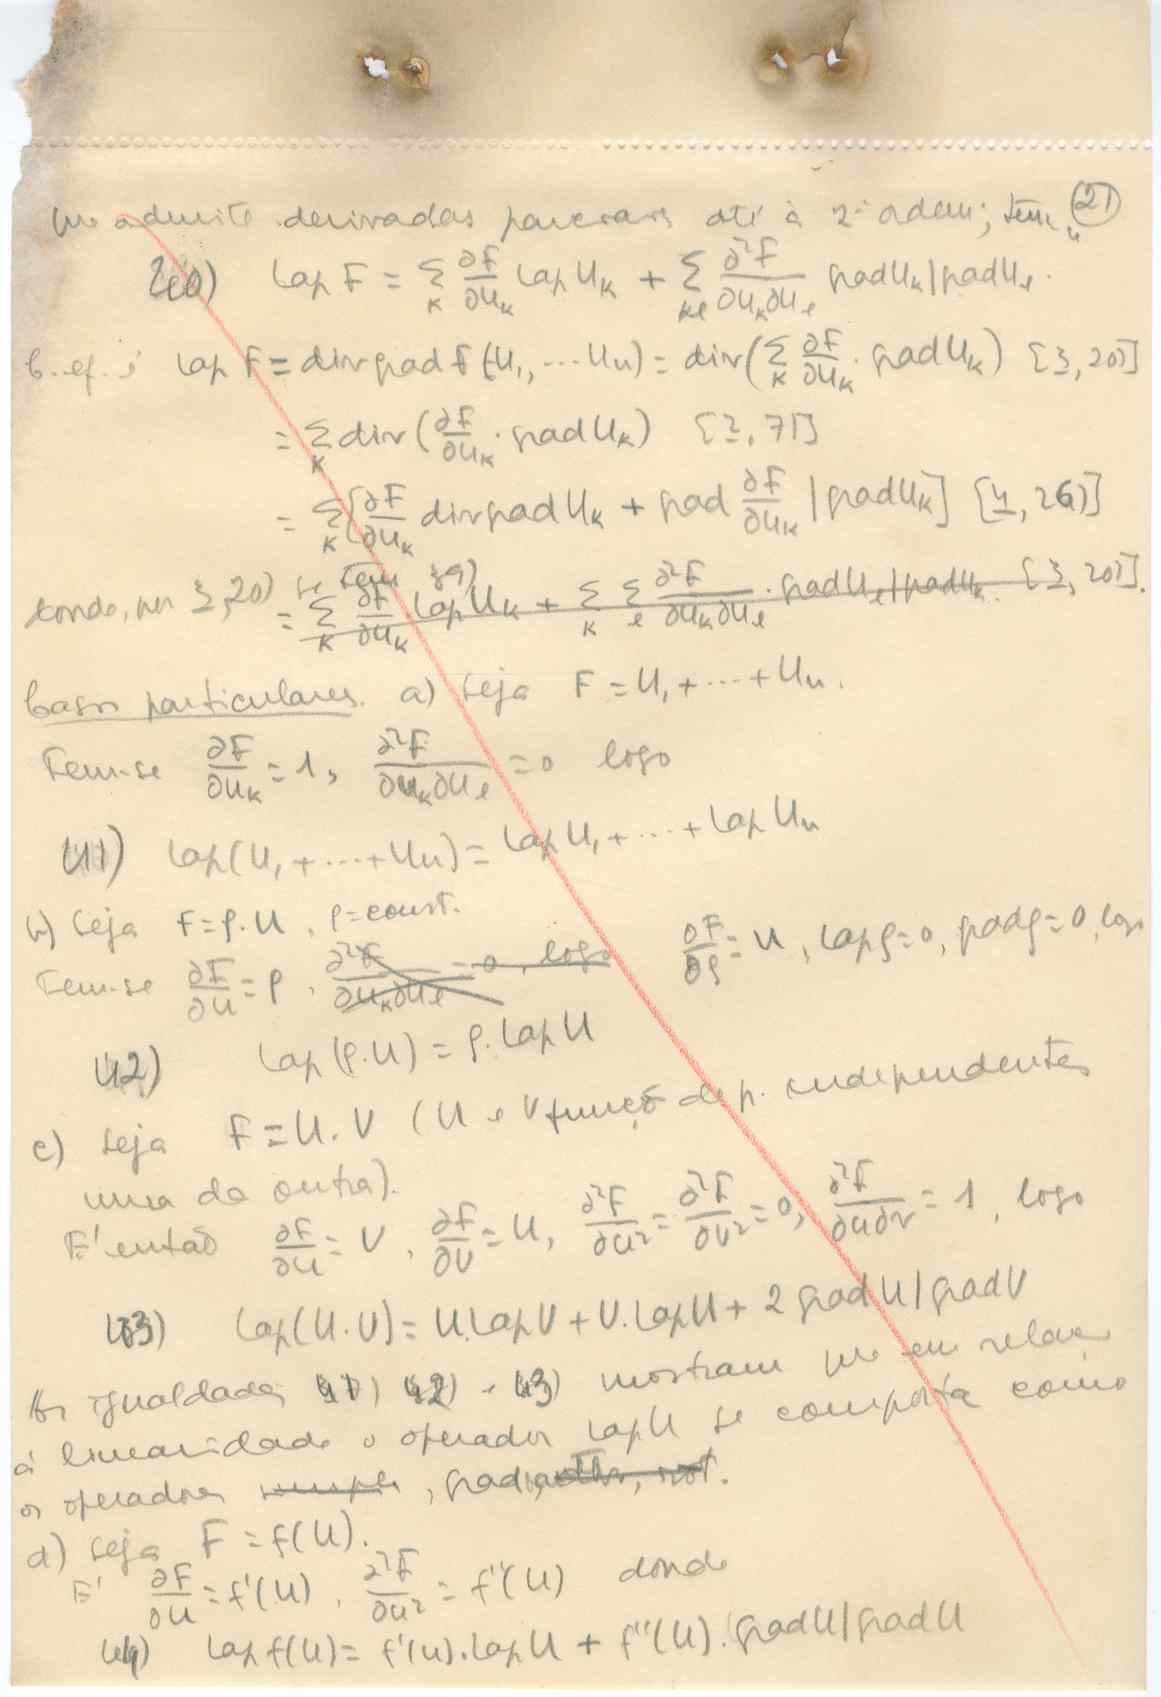 que admite derivadas parciais até à 2ª ordem; tem-se (21)
40) lap F = Σ_k ∂F/∂u_k lap u_k + Σ_kl ∂²F/∂u_k∂u_l grad u_k | grad u_l.
C. ef. é lap F = div grad F(u₁, ... u_n) = div(Σ_k ∂F/∂u_k . grad u_k) [3, 20)]
= Σ_k div(∂F/∂u_k . grad u_k) [2, 7)]
= Σ_k [∂F/∂u_k div grad u_k + grad ∂F/∂u_k | grad u_k] [4, 26)]
donde, por 3, 20) se tem 39)
= Σ_k ∂F/∂u_k . lap u_k + Σ_k Σ_l ∂²F/∂u_k∂u_l . grad u_l | grad u_k. [3, 20)].
Casos particulares. a) Seja F = u₁ + ... + u_n.
Tem-se ∂F/∂u_k = 1, ∂²F/∂u_k∂u_l = 0 logo
41) lap(u₁ + ... + u_n) = lap u₁ + ... + lap u_n
b) Seja F = ρ.u, ρ = const.
Tem-se ∂F/∂u = ρ, ∂²F/∂u_k∂u_l = 0, logo ∂F/∂ρ = u, lap ρ = 0, grad ρ = 0, logo
42) lap(ρ.u) = ρ.lap u
c) Seja F = u.v (u e v funções de p. independentes
uma da outra).
E' então ∂F/∂u = v, ∂F/∂v = u, ∂²F/∂u² = ∂²F/∂v² = 0, ∂²F/∂u∂v = 1, logo
43) lap(u.v) = u.lap v + v.lap u + 2 grad u | grad v
As igualdades 41) 42) e 43) mostram que em relação
à linearidade o operador lap u se comporta como
os operadores , grad, rot.
d) Seja F = f(u).
E' ∂F/∂u = f'(u), ∂²F/∂u² = f''(u) donde
44) lap f(u) = f'(u).lap u + f''(u).grad u | grad u